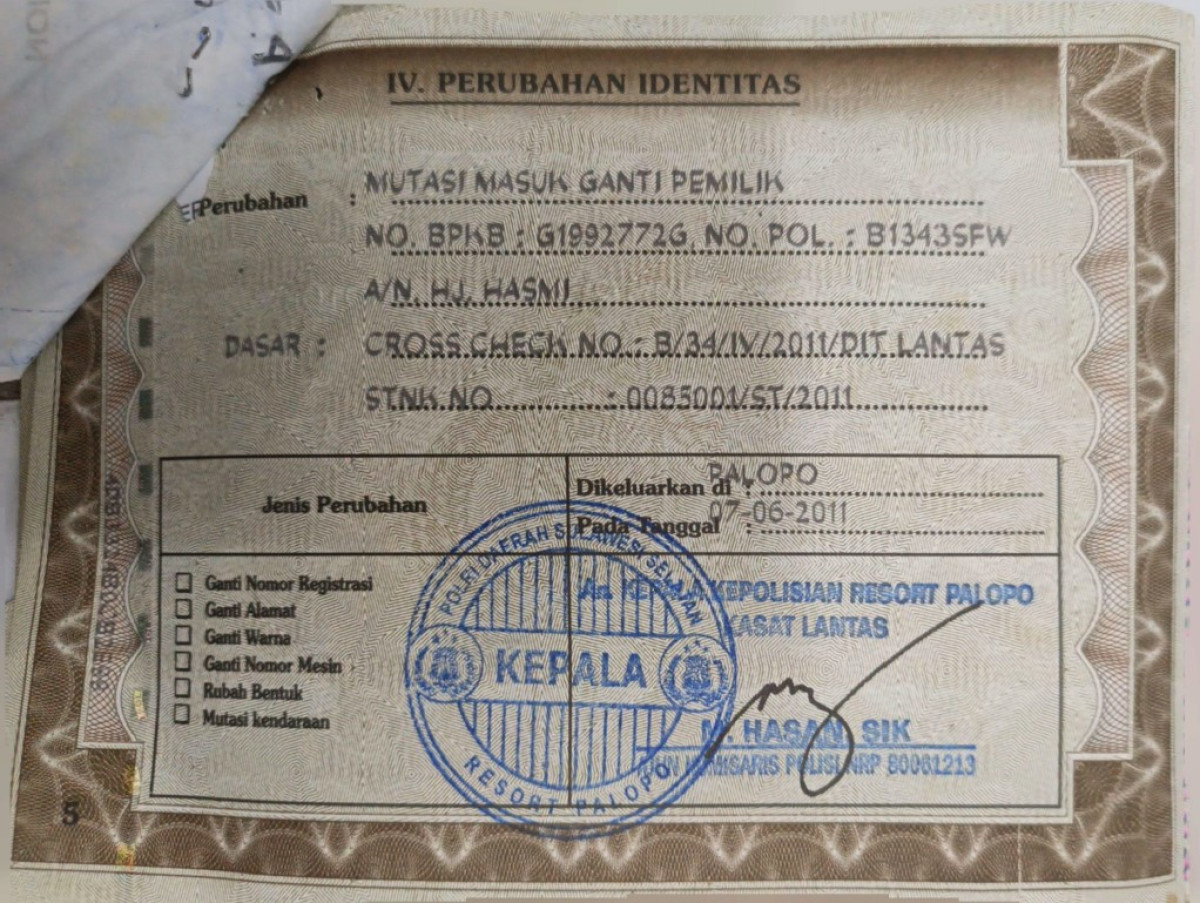 IV. PERUBAHAN IDENTITAS
Perubahan : MUTASI MASUK GANTI PEMILIK
NO. BPKB : G1992772G, NO. POL. : B1343SFW
A/N. HJ. HASMI
DASAR : CROSS CHECK NO. : B/34/IV/2011/DIT LANTAS
STNK NO. : 0085001/ST/2011
Jenis Perubahan
Dikeluarkan di : PALOPO
Pada Tanggal : 07-06-2011
Ganti Nomor Registrasi
Ganti Alamat
Ganti Warna
Ganti Nomor Mesin
Rubah Bentuk
Mutasi kendaraan
An. KEPALA KEPOLISIAN RESORT PALOPO
KASAT LANTAS
POLRI DAERAH SULAWESI SELATAN
KEPALA
RESORT PALOPO
M. HASAN, SIK
KOMISARIS POLISI NRP 80061213
5